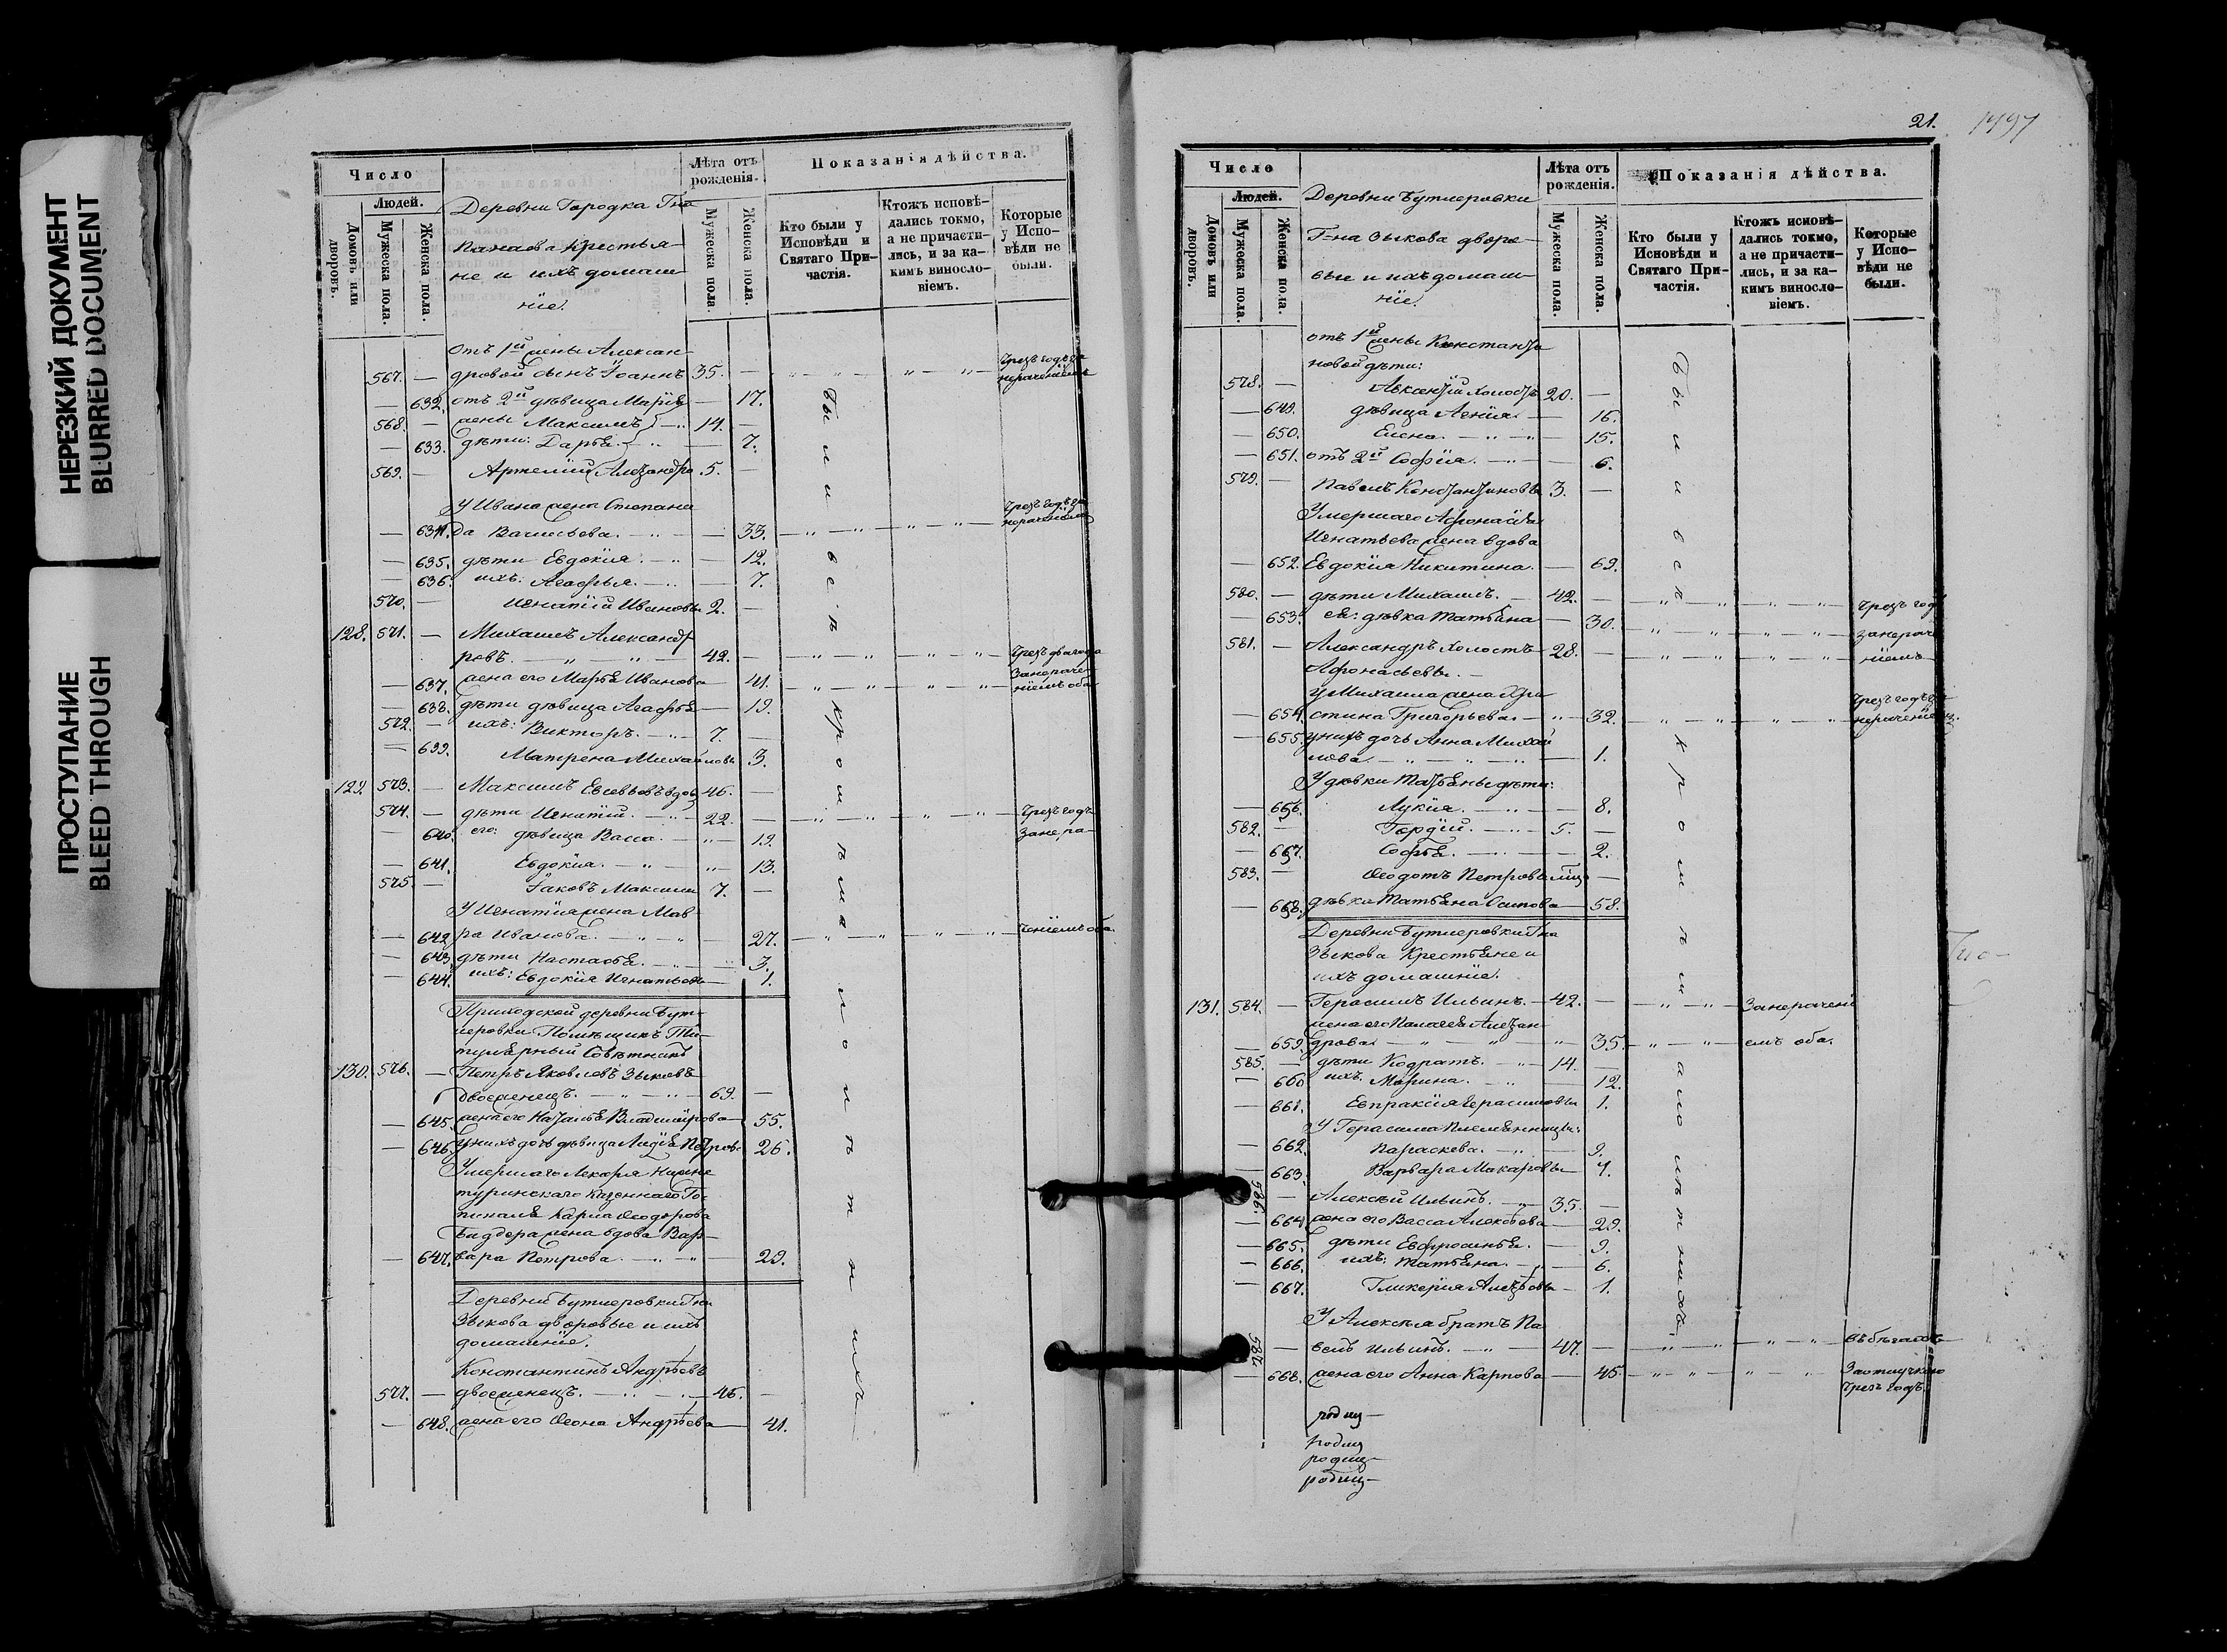 НЕРЕЗКИЙ ДОКУМЕНТ
BLURRED DOCUMENT
ПРОСТУПАНИЕ
BLEED THROUGH
Число
Людей.
Домовъ или дворовъ.
Мужеска пола.
Женска пола.
Деревни Городка Гна
крестья-
не и ихъ домаш
ніе.
Лѣта отъ рожденія.
Мужеска пола.
Женска пола.
Показанія дѣйства.
Кто были у Исповѣди и Святаго При-частія.
Ктожъ исповѣ-дались токмо, а не причасти-лись, и за ка-кимъ винословіемъ.
Которые у Испо-вѣди не были.
отъ 1й жены Алексан
567. — дровой сынъ Іоаннъ 35. — чрезъ годъ за нерачениемъ
— 632. отъ 2й дѣвица Марія — 17.
568. — жены Максимъ 14. —
— 633. дѣти: Дарья — 7.
569. — Артемій 5. —
У Ивана жена Степани
— 634. да Васильева. — 33. чрезъ годъ за нерачениемъ
— 635. дѣти Евдокія. — 12.
— 636. ихъ: Агафья. — 7.
570. — Игнатій Ивановы 2. —
128. 571. — Михаилъ Александ
ровъ. 42. — Чрезъ два года
— 637. жена его Марья Иванова — 41. Занераче-ніемъ оба
— 638. дѣти дѣвица Агафья — 19.
572. — ихъ: Викторъ. 7. —
— 639. Матрена Михайловы 3.
129. 573. — Максимъ 46. —
574. — дѣти Игнатій. 22. — Чрезъ годъ
— 640. его: дѣвица Васса. — 19. Занера-
— 641. Евдокія. — 13.
575. — Іаковъ Максим 7. —
У Игнатія жена Мав
— 642. ра Иванова. — 27. ченіемъ оба.
— 643. дѣти Настасья. — 3.
— 644. ихъ: Евдокія Игнатьевы — 1.
Приходской деревни Бут-
леровки Помѣщикъ Ти-
тулярный Совѣтникъ
130. 576. — Петръ Яковлевъ Зыковъ
двоеженецъ. 69. —
— 645. жена его Наталья Владимірова — 55.
— 646. у нихъ дочь дѣвица Лидія Петров. 26.
Умершаго Лекаря Нижне
туринскаго Казеннаго Го-
шпиталя Карла Ѳеодорова
жена вдова Вар-
— 647. вара Петрова. — 29.
Деревни Бутлеровки Гна
Зыкова дворовые и ихъ
домашніе.
Константинъ Андрѣевъ
577. — двоеженецъ. 46. —
— 648. жена его Ѳеона Андрѣева — 41.
Были всѣ кромѣ малолѣтнихъ
21.
1497
Число
Людей.
Домовъ или дворовъ.
Мужеска пола.
Женска пола.
Деревни Бутлеровки
Г-на Зыкова дворо-
вые и ихъ домаш-
ніе.
Лѣта отъ рожденія.
Мужеска пола.
Женска пола.
Показанія дѣйства.
Кто были у Исповѣди и Святаго При-частія.
Ктожъ исповѣ-дались токмо, а не причасти-лись, и за ка-кимъ винословіемъ.
Которые у Испо-вѣди не были.
отъ 1й жены Констант
новой дѣти:
578. — Авксентій холостъ 20. —
— 649. дѣвица — 16.
— 650. Елена. — 15.
— 651. отъ 2й Софія. — 6.
579. — Павелъ Константиновы 3. —
Умершаго Афонасія
Игнатьева жена вдова
— 652. Евдокія Никитина. — 69.
580. — дѣти Михаилъ. 42. — Чрезъ год
— 653. ея: дѣвка Татьяна — 30. занераче
581. — Александръ Холостъ 28. — ніемъ
Афонасьевы. —
у Михаила жена Хри
— 654. стина Григорьева. — 32. Чрезъ годъ за нерачениемъ.
— 655. у нихъ дочь Анна Михай
лова. — 1.
У дѣвки Татьяны дѣти:
— 656. Лукія. — 8.
582. — Гордій. 5. —
— 657. Софья. — 2.
583. — Ѳеодотъ Петровы —
— 658. дѣвки Татьяна Осипова — 58.
Деревни Бутлеровки Гна
Зыкова Крестьяне и
ихъ домашніе.
131. 584. — Герасимъ Ильинъ. 42. — Занерачені
жена его Пелагея Алексан-
— 659. дрова. 35. емъ оба.
585. — дѣти Кодратъ. 14. —
— 660. ихъ. Марина. — 12.
— 661. Евпраксія Герасимовы 1.
У Герасима племянницы:
— 662. Параскева. — 9.
— 663. Варвара Макаровы — 7.
586. — Алексѣй Ильинъ. 35. —
— 664. жена его Васса Алексѣева — 29.
— 665. дѣти Евфросинья. — 9.
— 666. ихъ: Татьяна. — 6.
— 667. Гликерія Алексѣевы — 1.
У Алексѣя братъ Па
587. — велъ Ильинъ. 47. — въ бѣгахъ
— 668. жена его Анна Карпова — 45. За отлучкою чрезъ годъ.
Были всѣ кромѣ малолѣтнихъ